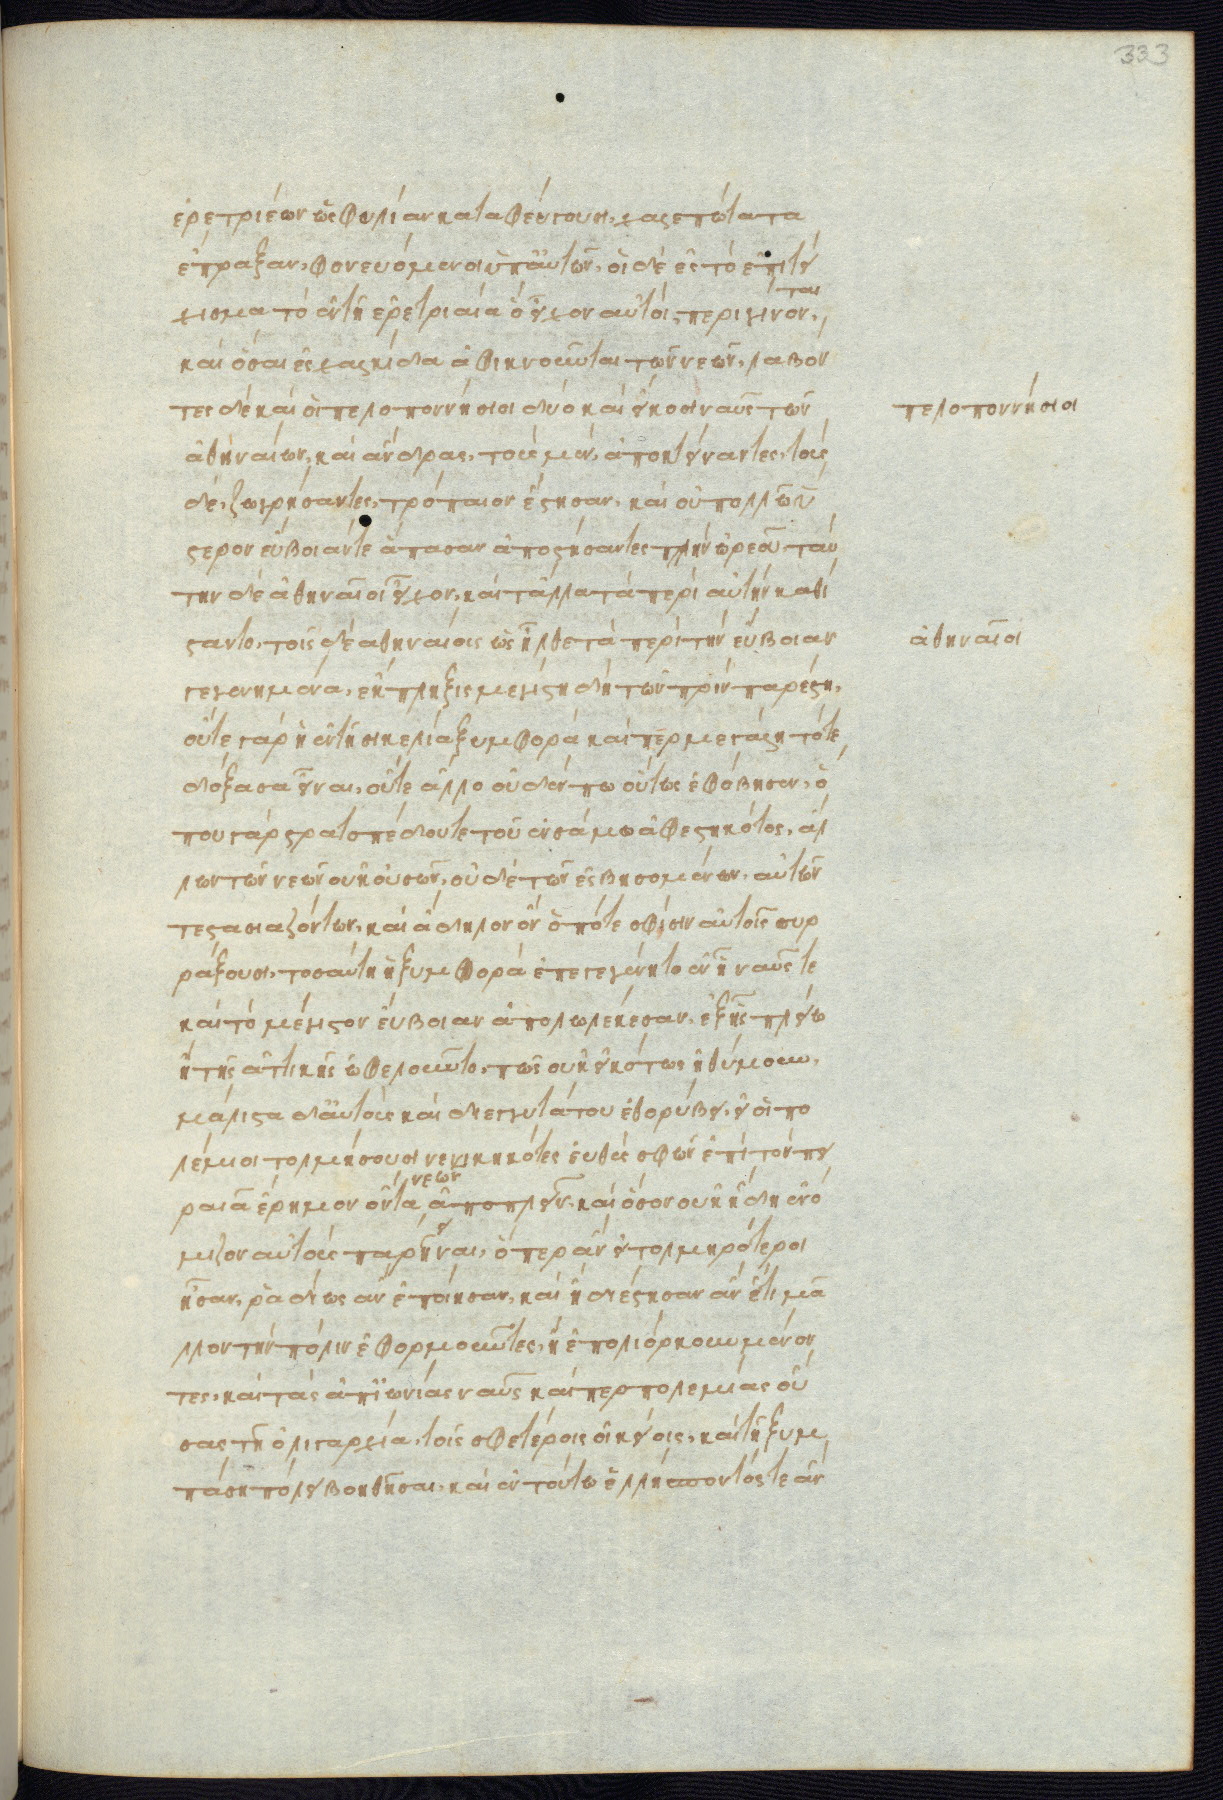 333
ἐρετριέων ὡς φιλίαν καταφεύγουσι, χαλεπώτατα
ἔπραξαν, φονευόμενοι ὑπ' αὐτῶν, οἱ δὲ ἐς τὸ ἐπιτεί
χισμα τὸ ἐν τῇ ἐρετριαία ὃ εἶχον αὐτοὶ, περιγίνονται,
καὶ ὅσαι ἐς χαλκίδα ἀφικνοῦνται τῶν νεῶν, λαβόν
τες δὲ καὶ οἱ πελοποννήσιοι δύο καὶ εἴκοσι ναῦς τῶν
πελοποννήσιοι
ἀθηναίων, καὶ ἄνδρας, τοὺς μὲν, ἀποκτείναντες, τοὺς
δὲ, ζωγρήσαντες, τρόπαιον ἔστησαν, καὶ οὐ πολλῶ ὕ
στερον εὔβοιάν τε ἅπασαν ἀποστήσαντες πλὴν ὠρεοῦ ταύ
την δὲ ἀθηναῖοι εἶχον, καὶ τἄλλα τὰ περὶ αὐτὴν καθί
σταντο, τοῖς δὲ ἀθηναίοις ὡς ἦλθε τὰ περὶ τὴν εὔβοιαν
ἀθηναῖοι
γεγενημένα, ἔκπληξις μεγίστη δὴ τῶν πρὶν παρέστη,
οὔτε γὰρ ἡ ἐν τῇ σικελία ξυμφορὰ καίπερ μεγάλη τότε
δόξασα εἶναι, οὔτε ἄλλο οὐδέν πω οὕτως ἐφόβησεν, ὅ
που γὰρ στρατοπέδου τε τοῦ ἐν σάμω ἀφεστηκότος, ἄλ
λων τῶν νεῶν οὐκ οὐσῶν, οὐδὲ τῶν ἐσβησομένων, αὐτῶν
τε στασιαζόντων, καὶ ἄδηλον ὂν ὁπότε σφίσιν αὐτοῖς συρ
ράξουσι, τοσαύτη ἡ ξυμφορὰ ἐπεγεγένητο ἐν ἧ ναῦς τε
καὶ τὸ μέγιστον εὔβοιαν ἀπολωλέκεσαν, ἐξ ἧς πλείω
ἢ τῆς ἀττικῆς ὠφελοῦντο, πῶς οὐκ εἰκότως ἠθύμουν,
μάλιστα δ' αὐτοὺς καὶ δι' ἐγγυτάτου ἐθορύβει, εἰ οἱ πο
λέμιοι τολμήσουσι νενικηκότες εὐθὺς σφῶν ἐπὶ τὸν πει
ραιᾶ ἐρῆμον ὄντα νεῶν ἀποπλεῖν, καὶ ὅσον οὐκ ἤδη ἐνό
μιζον αὐτοὺς παρεῖναι, ὅπερ ἂν εἰ τολμηρότεροι
ἦσαν, ῥαδίως ἂν ἐποίησαν, καὶ ἢ διέστησαν ἂν ἔτι μᾶ
λλον τὴν πόλιν ἐφορμοῦντες, ἢ ἐπολιόρκουν μένον
τες, καὶ τὰς ἀπ' ἰωνίας ναῦς καίπερ πολεμίας οὔ
σας τῆ ὀλιγαρχία, τοῖς σφετέροις οἰκείοις, καὶ τῆ ξυμ
πάση πόλει βοηθῆσαι, καὶ ἐν τούτω ἑλλήσποντός τε ἂν